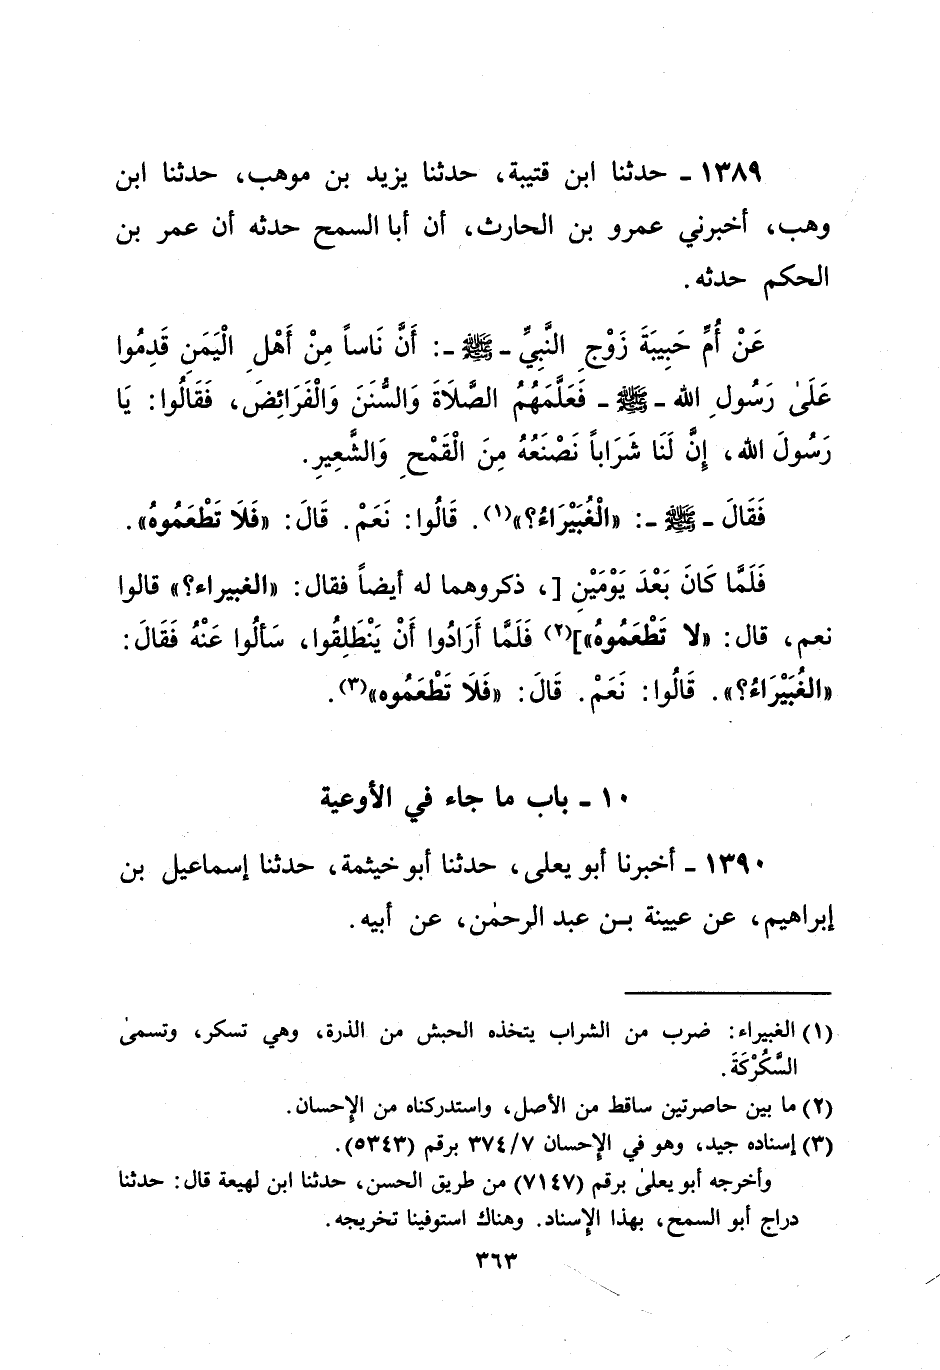 ١٣٨٩ ـ حدثنا ابن قتيبة، حدثنا يزيد بن موهب، حدثنا ابن
وهب، أخبرني عمرو بن الحارث، أن أبا السمح حدثه أن عمر بن
الحكم حدثه.
عَنْ أُمِّ حَبِيبَةَ زَوْجِ النَّبِيِّ ـ ﷺ ـ: أَنَّ نَاساً مِنْ أَهْلِ الْيَمَنِ قَدِمُوا
عَلَىٰ رَسُولِ الله ـ ﷺ ـ فَعَلَّمَهُمُ الصَّلَاةَ وَالسُّنَنَ وَالْفَرَائِضَ، فَقَالُوا: يَا
رَسُولَ الله، إِنَّ لَنَا شَرَاباً نَصْنَعُهُ مِنَ الْقَمْحِ وَالشَّعِيرِ.
فَقَالَ ـ ﷺ ـ: «الْغُبَيْرَاءُ؟»(١). قَالُوا: نَعَمْ. قَالَ: «فَلَا تَطْعَمُوهُ».
فَلَمَّا كَانَ بَعْدَ يَوْمَيْنِ [، ذكروهما له أيضاً فقال: «الغبيراء؟» قالوا
نعم، قال: «لا تَطْعَمُوهُ»](٢) فَلَمَّا أَرَادُوا أَنْ يَنْطَلِقُوا، سَأَلُوا عَنْهُ فَقَالَ:
«الغُبَيْرَاءُ؟». قَالُوا: نَعَمْ. قَالَ: «فَلَا تَطْعَمُوه»(٣).
١٠ ـ باب ما جاء في الأوعية
١٣٩٠ ـ أخبرنا أبو يعلى، حدثنا أبو خيثمة، حدثنا إسماعيل بن
إبراهيم، عن عيينة بن عبد الرحمٰن، عن أبيه.
(١) الغبيراء: ضرب من الشراب يتخذه الحبش من الذرة، وهي تسكر، وتسمىٰ
السُّكُرْكَةَ.
(٢) ما بين حاصرتين ساقط من الأصل، واستدركناه من الإحسان.
(٣) إسناده جيد، وهو في الإحسان ٣٧٤/٧ برقم (٥٣٤٣).
وأخرجه أبو يعلىٰ برقم (٧١٤٧) من طريق الحسن، حدثنا ابن لهيعة قال: حدثنا
دراج أبو السمح، بهذا الإسناد. وهناك استوفينا تخريجه.
٣٦٣